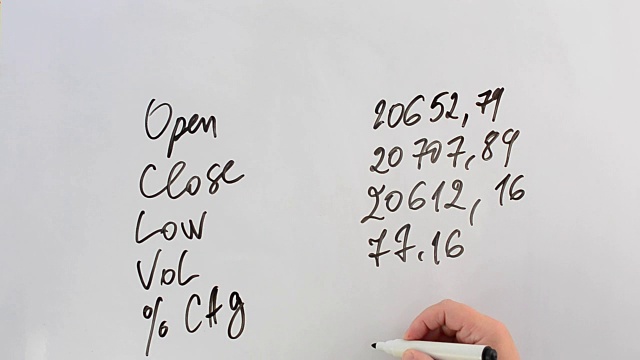 Open 20652,79
Close 20707,89
Low 20612,16
Vol 77.16
% CHg